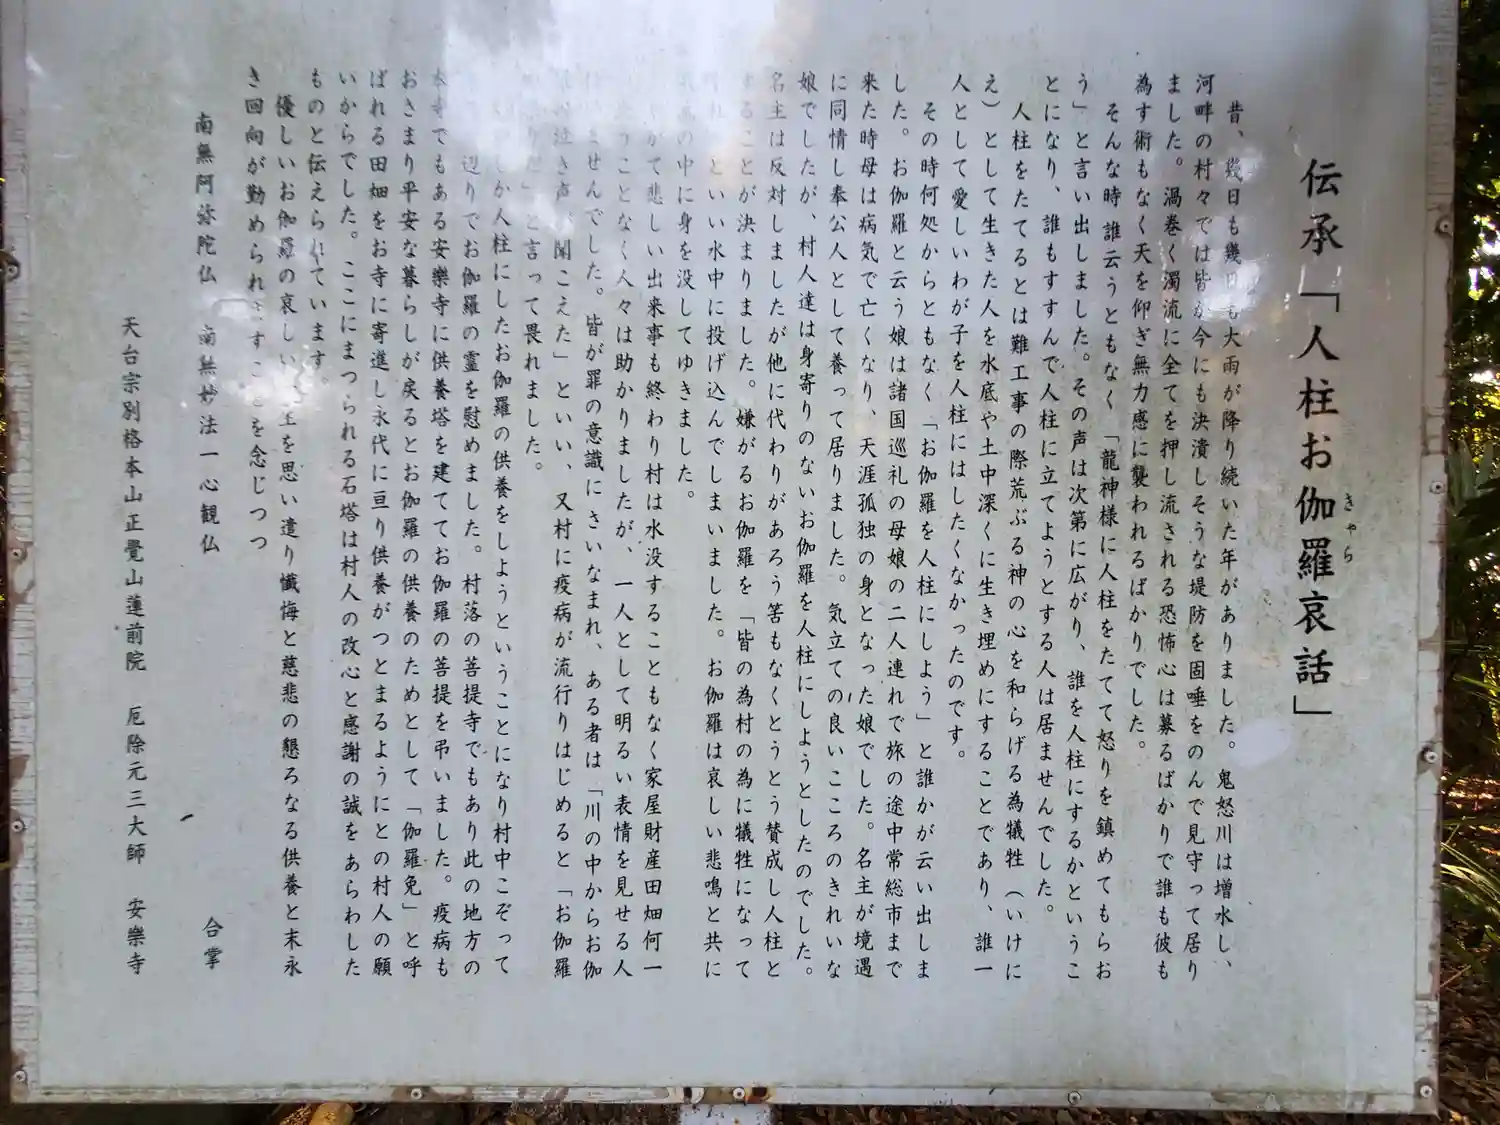 伝承「人柱お伽羅哀話」
きゃら
昔、幾日も幾日も大雨が降り続いた年がありました。鬼怒川は増水し、
河畔の村々では皆が今にも決潰しそうな堤防を固唾をのんで見守って居り
ました。渦巻く濁流に全てを押し流される恐怖心は募るばかりで誰も彼も
為す術もなく天を仰ぎ無力感に襲われるばかりでした。
そんな時 誰云うともなく 「龍神様に人柱をたてて怒りを鎮めてもらお
う」と言い出しました。その声は次第に広がり、誰を人柱にするかというこ
とになり、誰もすすんで人柱に立てようとする人は居ませんでした。
人柱をたてるとは難工事の際荒ぶる神の心を和らげる為犠牲（いけに
え）として生きた人を水底や土中深くに生き埋めにすることであり、誰一
人として愛しいわが子を人柱にはしたくなかったのです。
その時何処からともなく「お伽羅を人柱にしよう」と誰かが云い出しま
した。お伽羅と云う娘は諸国巡礼の母娘の二人連れで旅の途中常総市まで
来た時母は病気で亡くなり、天涯孤独の身となった娘でした。名主が境遇
に同情し奉公人として養って居りました。気立ての良いこころのきれいな
娘でしたが、村人達は身寄りのないお伽羅を人柱にしようとしたのでした。
名主は反対しましたが他に代わりがあろう筈もなくとうとう賛成し人柱と
することが決まりました。嫌がるお伽羅を「皆の為村の為に犠牲になって
といい水中に投げ込んでしまいました。お伽羅は哀しい悲鳴と共に
の中に身を没してゆきました。
やがて悲しい出来事も終わり村は水没することもなく家屋財産田畑何一
うことなく人々は助かりましたが、一人として明るい表情を見せる人
ませんでした。皆が罪の意識にさいなまれ、ある者は「川の中からお伽
泣き声が聞こえた」といい、又村に疫病が流行りはじめると「お伽羅
と言って畏れました。
か人柱にしたお伽羅の供養をしようということになり村中こぞって
辺りでお伽羅の霊を慰めました。村落の菩提寺でもあり此の地方の
本寺でもある安樂寺に供養塔を建ててお伽羅の菩提を弔いました。疫病も
おさまり平安な暮らしが戻るとお伽羅の供養のためとして「伽羅免」と呼
ばれる田畑をお寺に寄進し永代に亘り供養がつとまるようにとの村人の願
いからでした。ここにまつられる石塔は村人の改心と感謝の誠をあらわした
ものと伝えられています。
優しいお伽羅の哀しい 生を思い遣り懺悔と慈悲の懇ろなる供養と末永
き回向が勤められますことを念じつつ
合掌
南無阿弥陀仏 南無妙法一心観仏
天台宗別格本山正覺山蓮前院 厄除元三大師 安樂寺